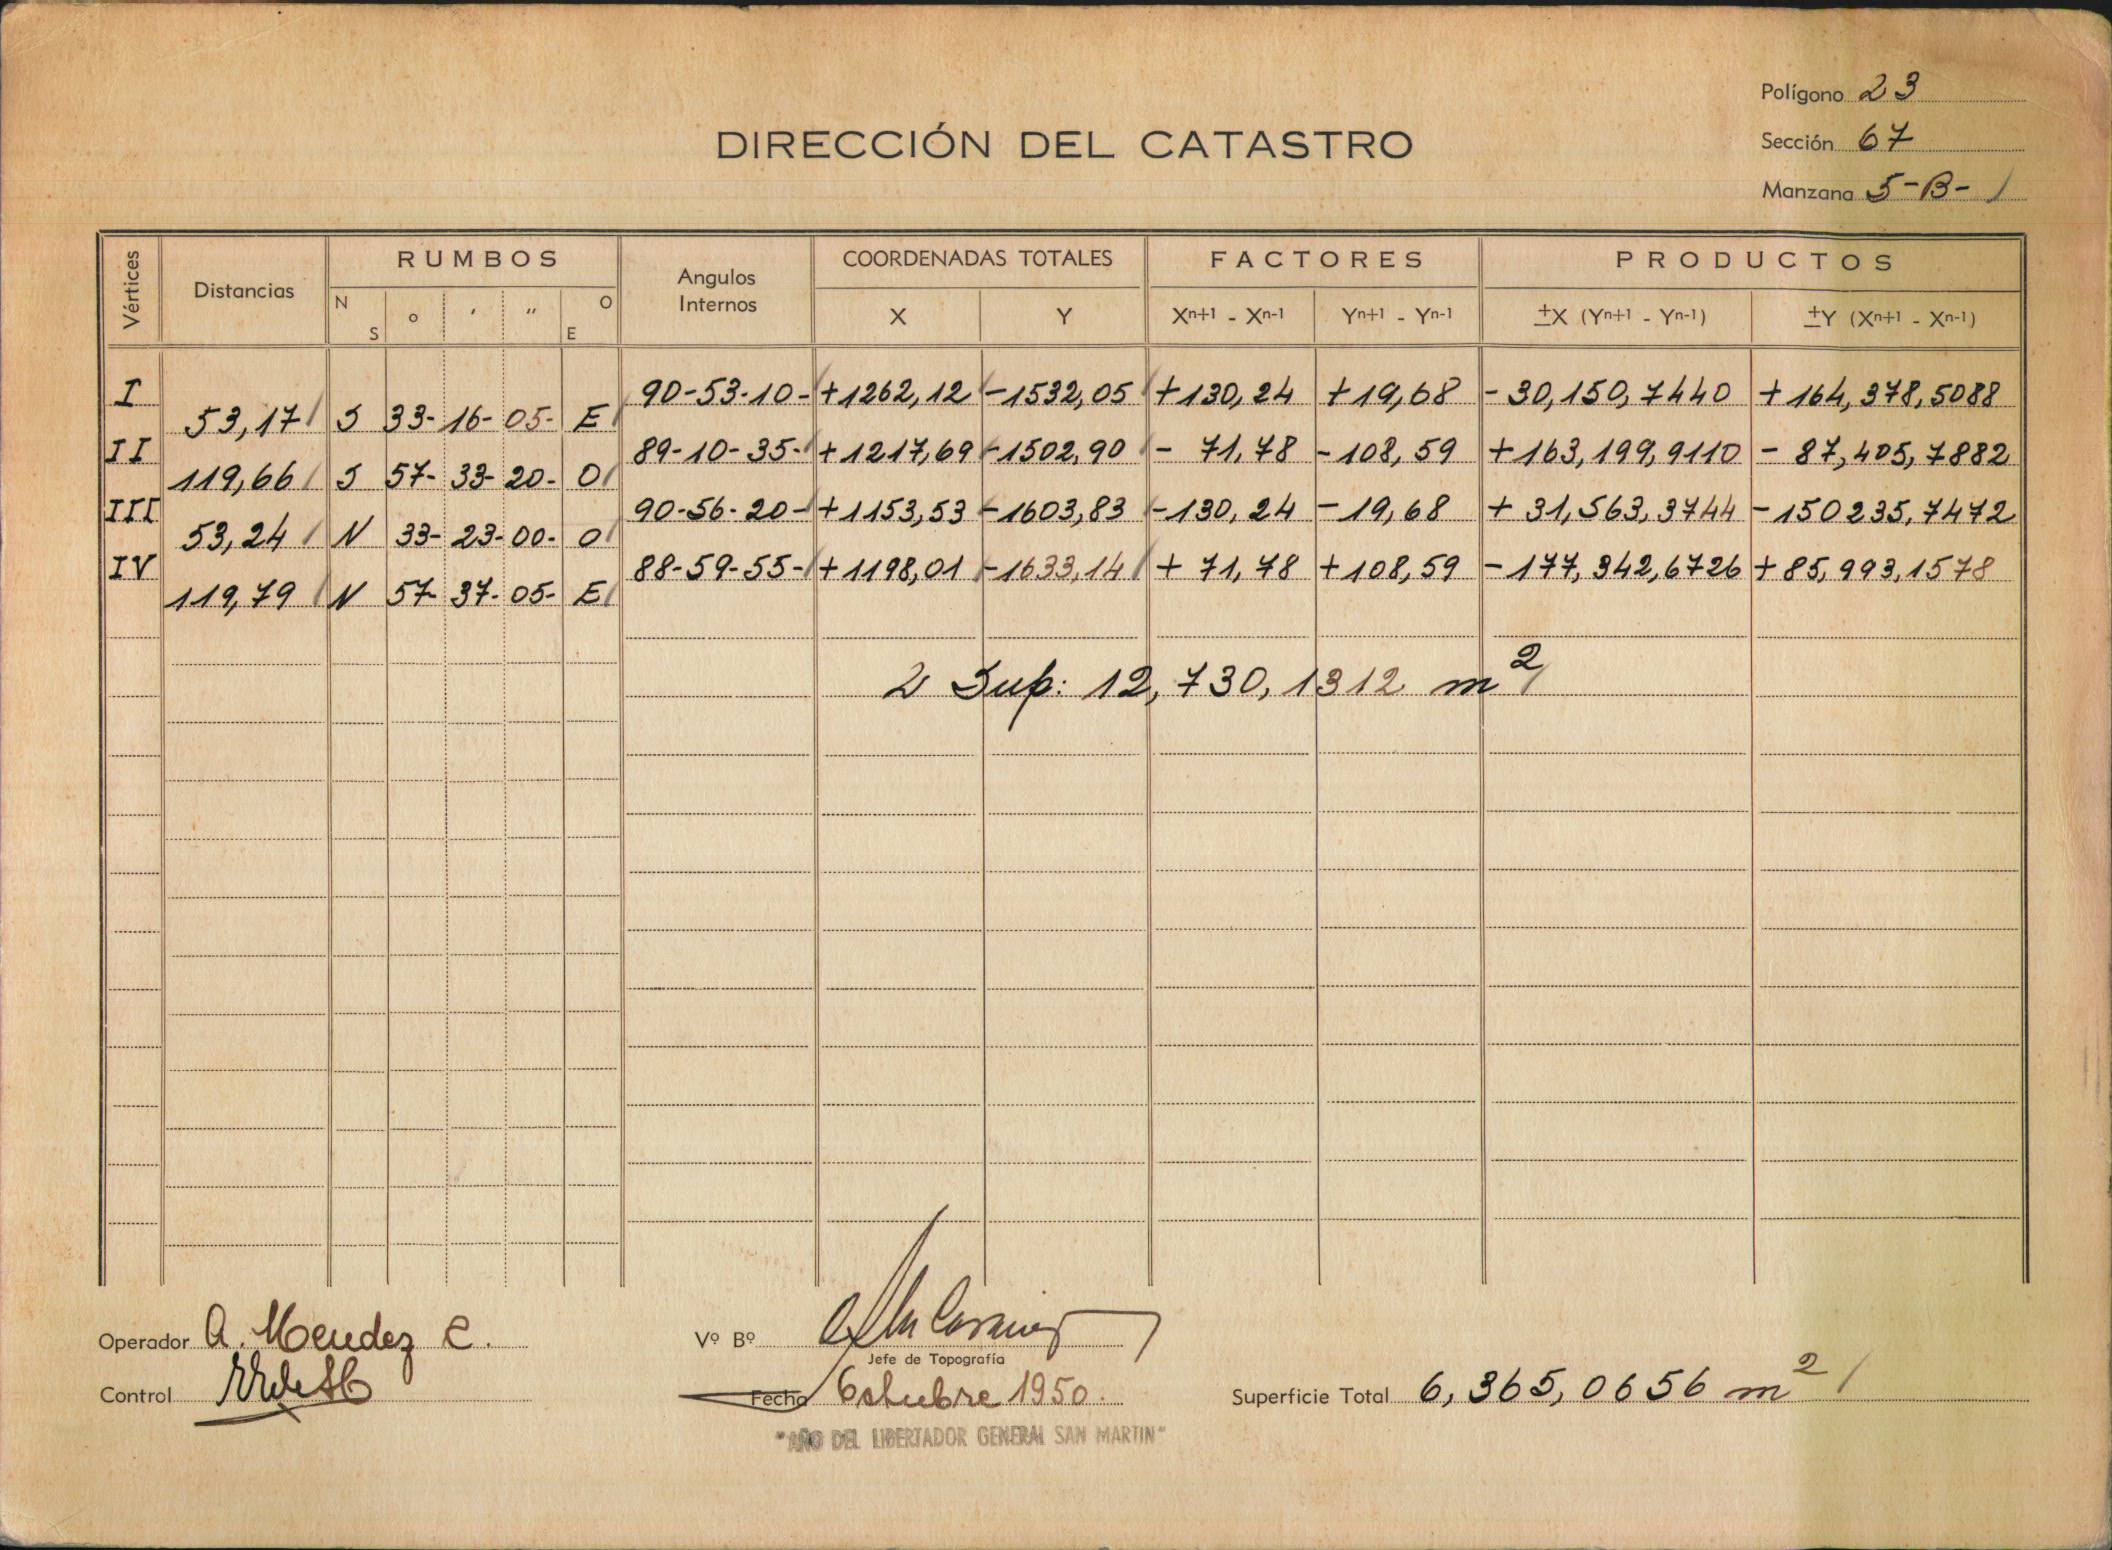 Polígono 23
DIRECCIÓN DEL CATASTRO
Sección 67
Manzana 5-B-
Vértices Distancias RUMBOS Angulos Internos COORDENADAS TOTALES FACTORES PRODUCTOS
N S o ' " O E X Y Xn+1 - Xn-1 Yn+1 - Yn-1 ±X (Yn+1 - Yn-1) ±Y (Xn+1 - Xn-1)
I 90-53-10- +1262,12 -1532,05 +130,24 +19,68 -30,150,7440 +164,378,5088
53,17 S 33- 16- 05- E
II 89-10-35- +1217,69 -1502,90 - 71,78 -108,59 +163,199,9110 - 87,405,7882
119,66 S 57- 33- 20- O
III 90-56-20- +1153,53 -1603,83 -130,24 -19,68 + 31,563,3744 -150235,7472
53,24 N 33- 23- 00- O
IV 88-59-55- +1198,01 -1633,14 + 71,78 +108,59 -177,342,6726 +85,993,1578
119,79 N 57- 37- 05- E
2 Sup: 12,730,1312 m²
Operador A. Mendez C.
Vº Bº
Jefe de Topografía
Control
Fecha Octubre 1950.
Superficie Total 6,365,0656 m²
"AÑO DEL LIBERTADOR GENERAL SAN MARTIN"